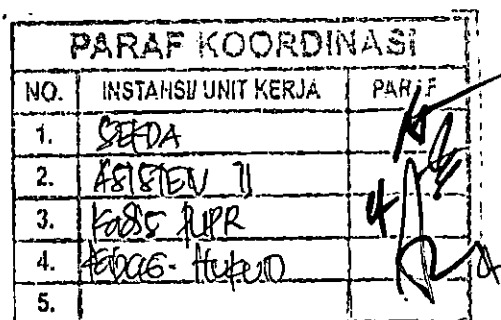 PARAF KOORDINASI
NO. INSTANSI/ UNIT KERJA PARAF
1. SEKDA
2. ASISTEN II
3. Kadis PUPR
4. KABAG- Hukum
5.